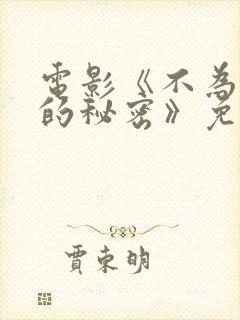 電影《不為
的秘密》免
賈東明